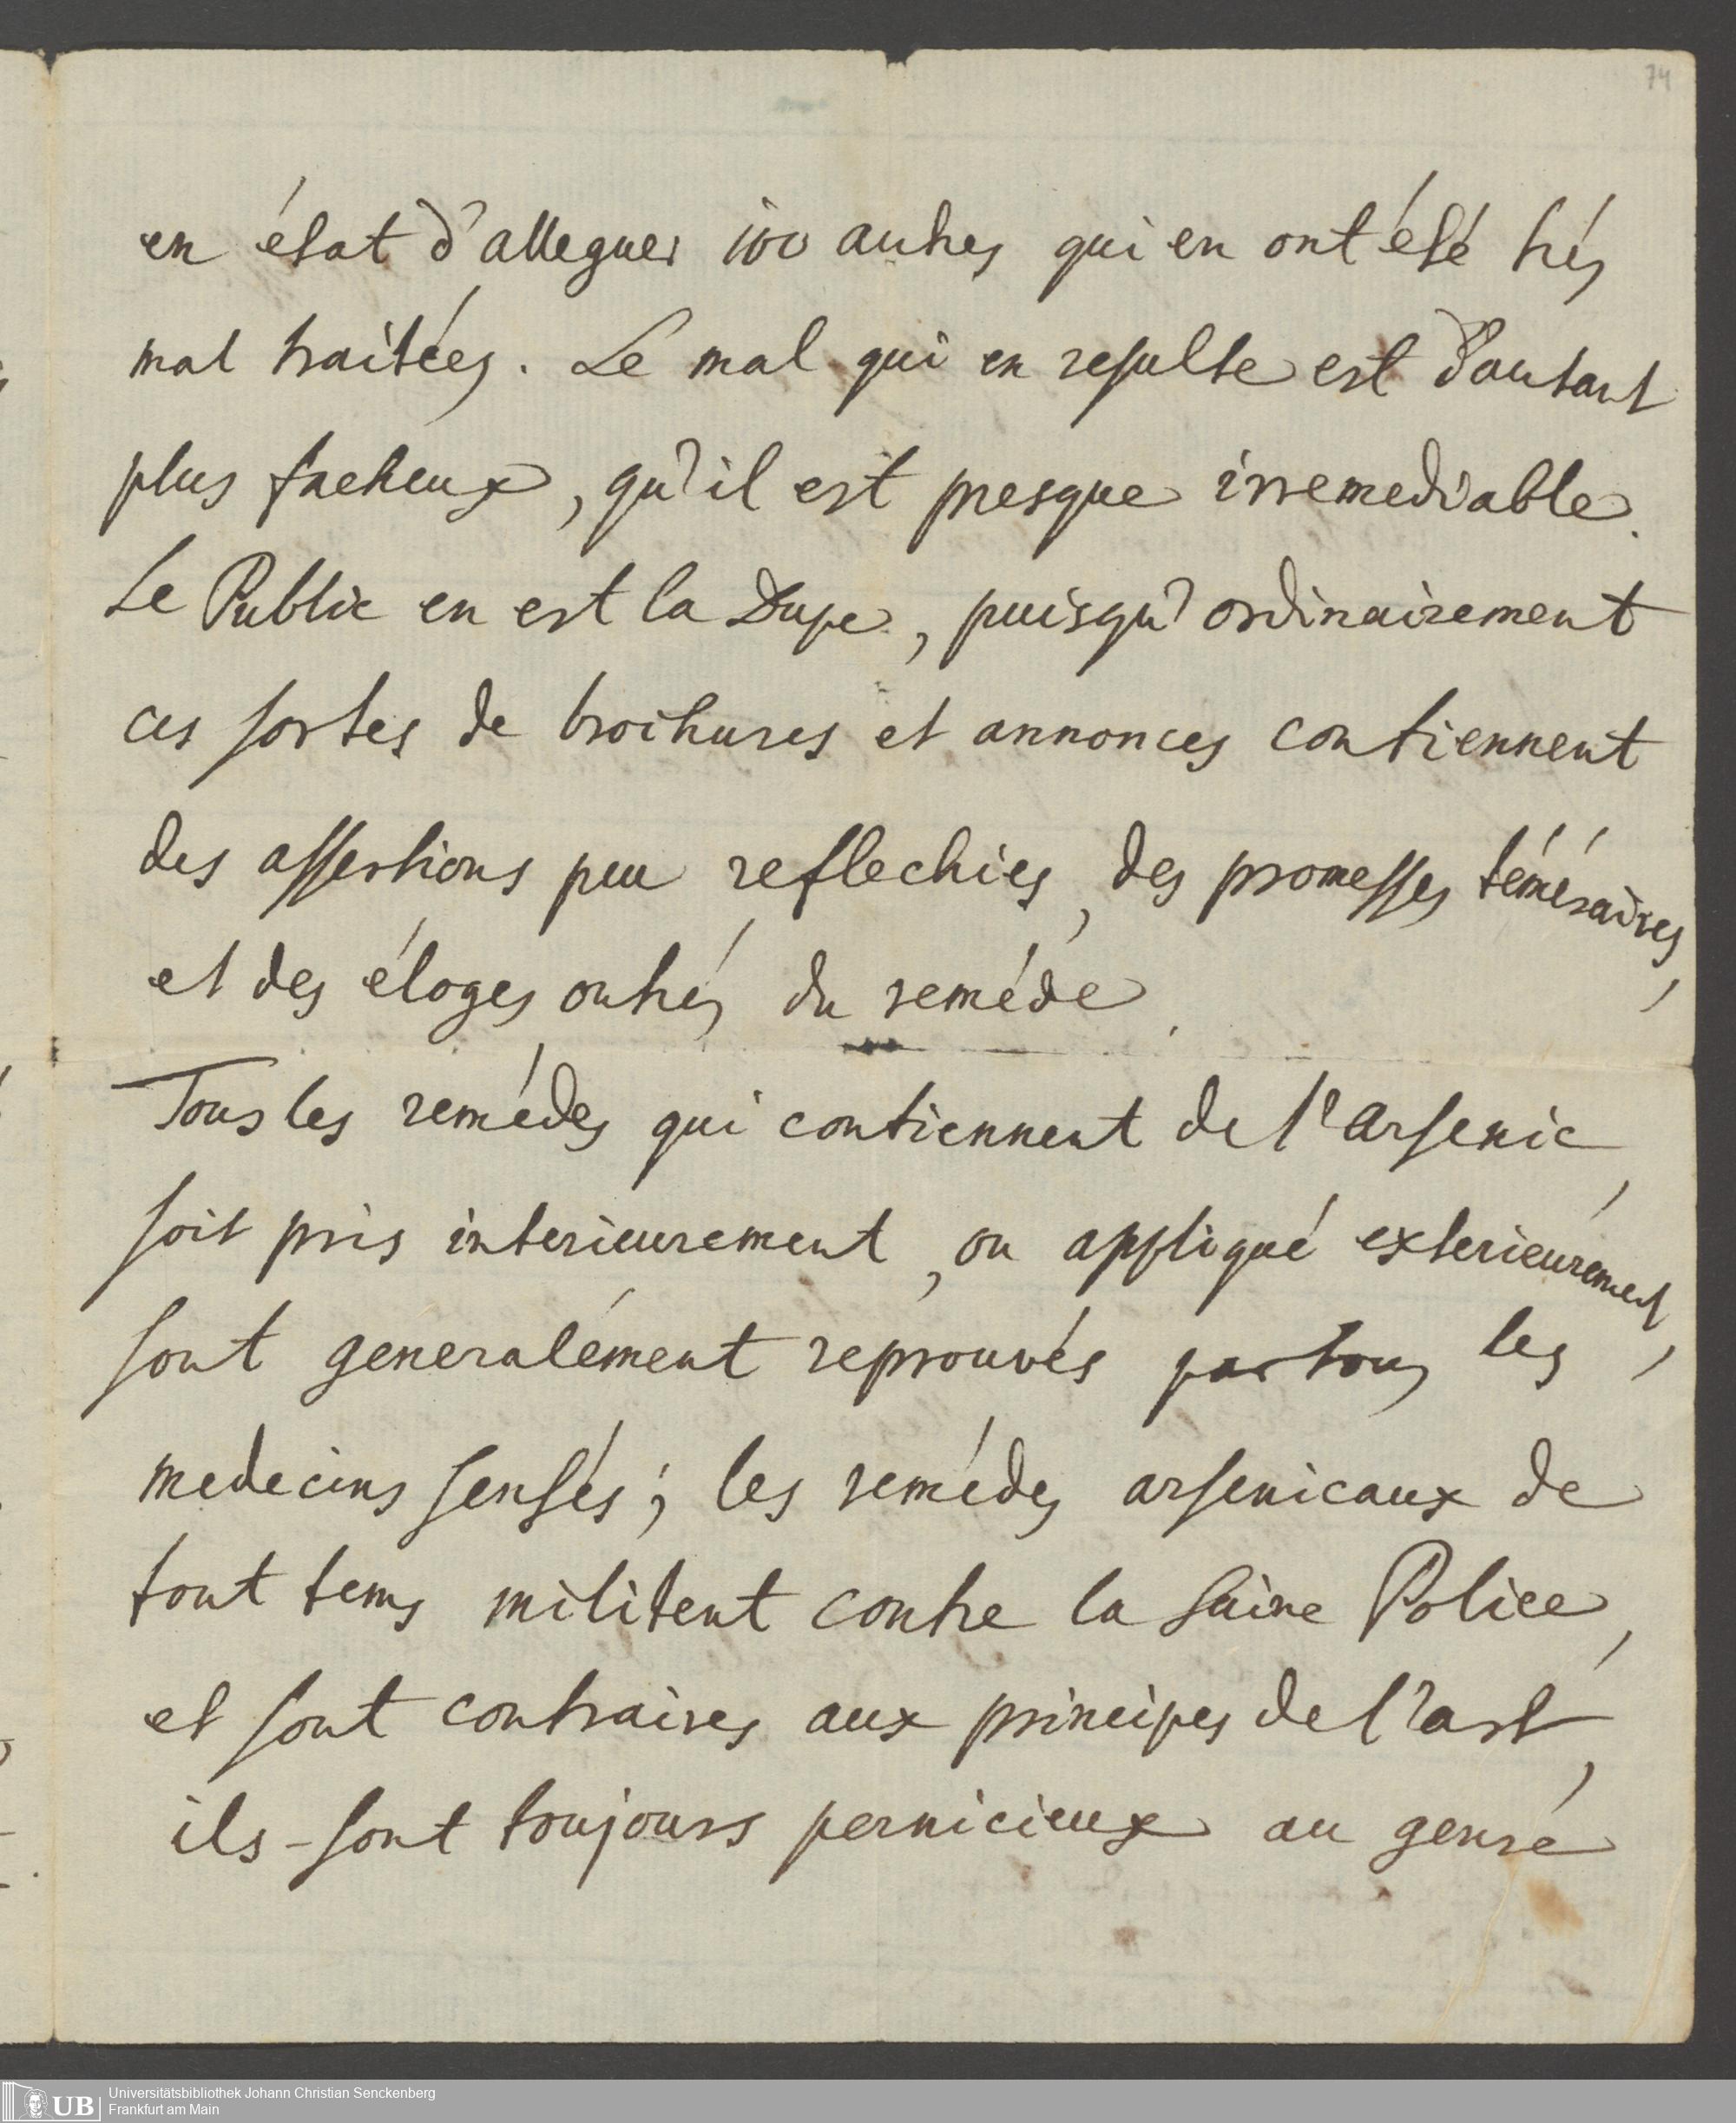 74
en état d'alleguer 100 autres qui en ont été trés
mal traitées. Le mal qui en resulte est d'autant
plus facheux, qu'il est presque irremediable.
Le Public en est la Dupe, puisqu'ordinairement
ces sortes de brochures et annonces contiennent
des assertions peu reflechies, des promesses téméraires,
et des éloges outrés du reméde.
Tous les remédes qui contiennent de l'arsenic,
soit pris interieurement, ou appliqué exterieurement,
sont generalement reprouvés par tous les
medecins sensés; les remédes arsenicaux de
tout tems militent contre la Saine Police,
et sont contraires aux principes de l'art,
ils sont toujours pernicieux au genre
UB Universitätsbibliothek Johann Christian Senckenberg
Frankfurt am Main